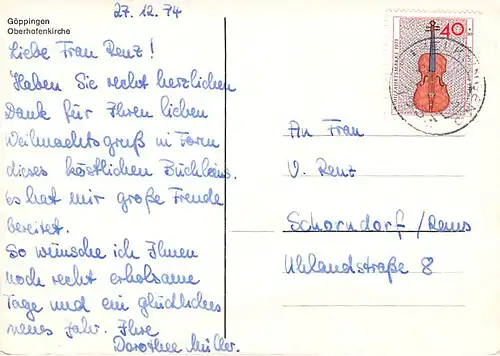 27.12.74
Göppingen
Oberhofenkirche
Liebe Frau Renz!
Haben Sie recht herzlichen
Dank für Ihren lieben
Weihnachtsgruß in Form
dieses köstlichen Büchleins.
es hat mir große Freude
bereitet.
So wünsche ich Ihnen
noch recht erholsame
Tage und ein glückliches
neues Jahr. Ihre
Dorothee Müller.
40
An Frau
V. Renz
Schorndorf/Rems
Uhlandstraße 8